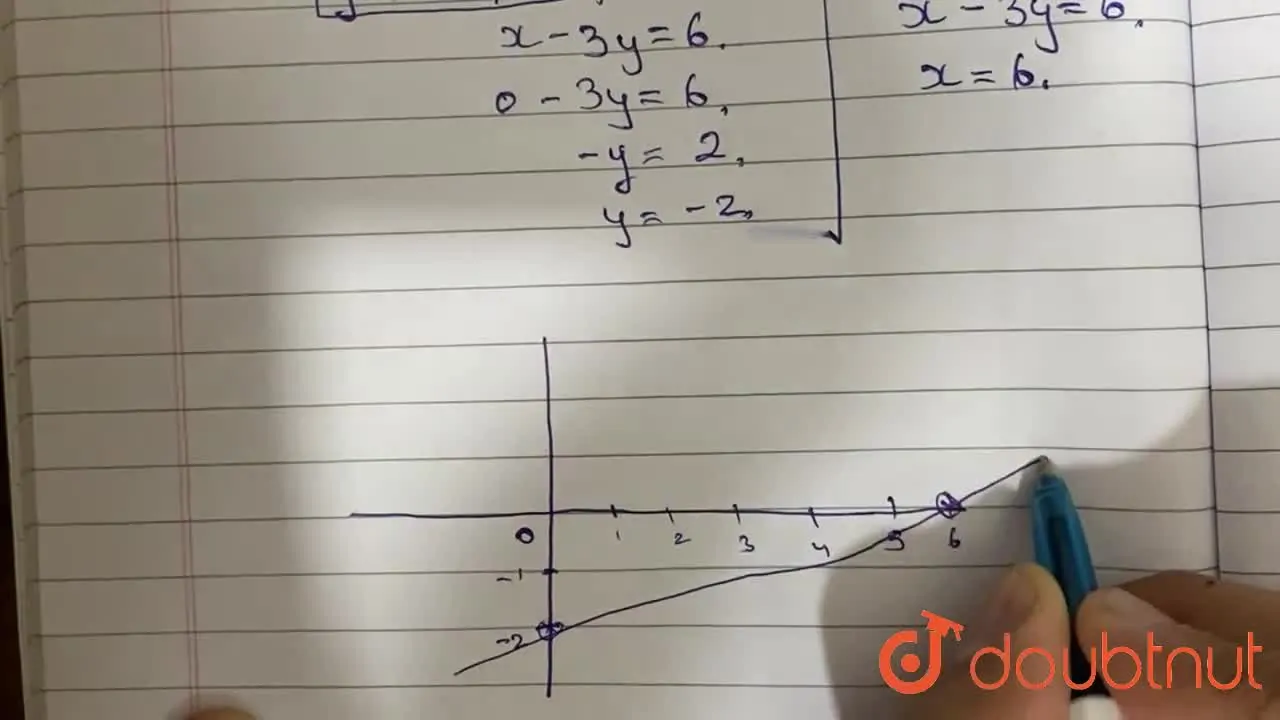 x - 3y = 6.
0 - 3y = 6,
-y = 2,
y = -2,
x - 3y = 6.
x = 6.
0 1 2 3 4 5 6
-1
-2
doubtnut